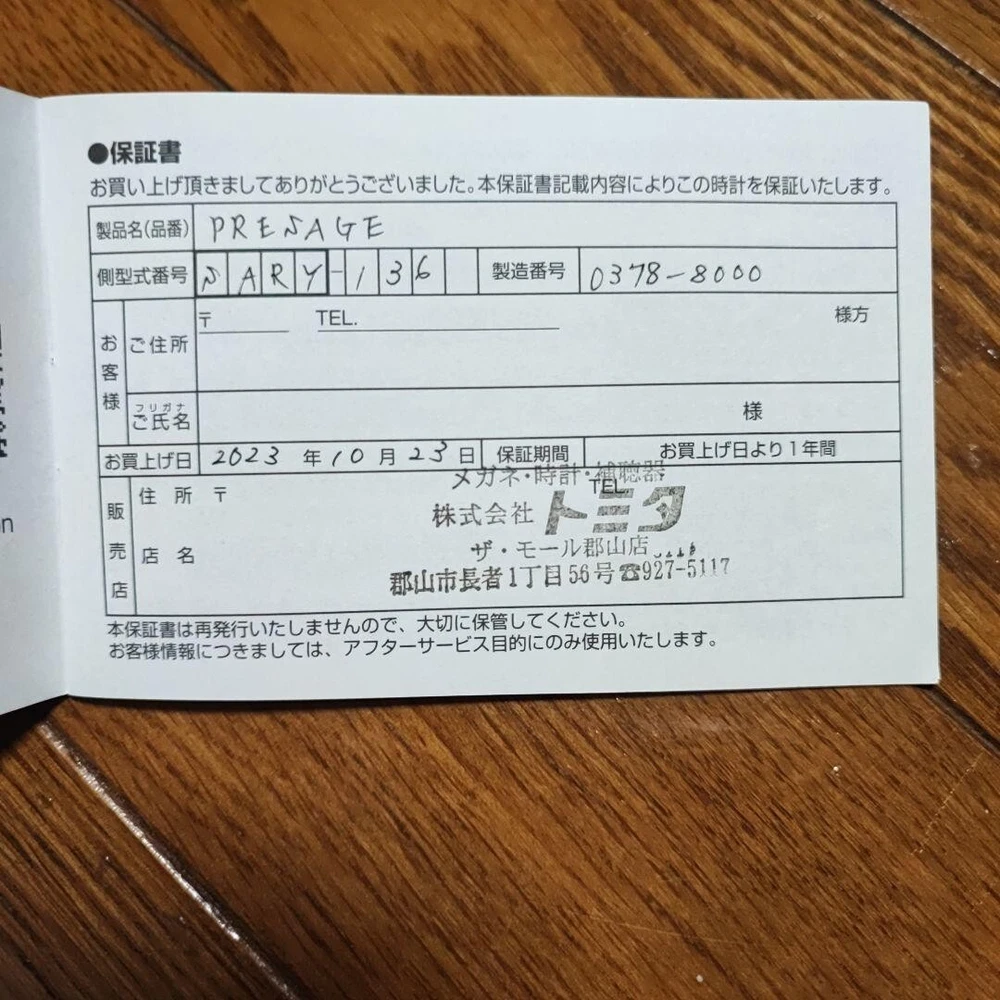 ●保証書
お買い上げ頂きましてありがとうございました。本保証書記載内容によりこの時計を保証いたします。
製品名(品番) PRESAGE
側型式番号 SARY-136 製造番号 0378-8000
お客様 ご住所 〒 TEL. 様方
フリガナ
ご氏名 様
お買上げ日 2023 年 10 月 23 日 保証期間 お買上げ日より1年間
メガネ・時計・補聴器
販売店 住所 〒 TEL
株式会社 トミタ
店名 ザ・モール郡山店
郡山市長者1丁目56号☎927-5117
本保証書は再発行いたしませんので、大切に保管してください。
お客様情報につきましては、アフターサービス目的にのみ使用いたします。